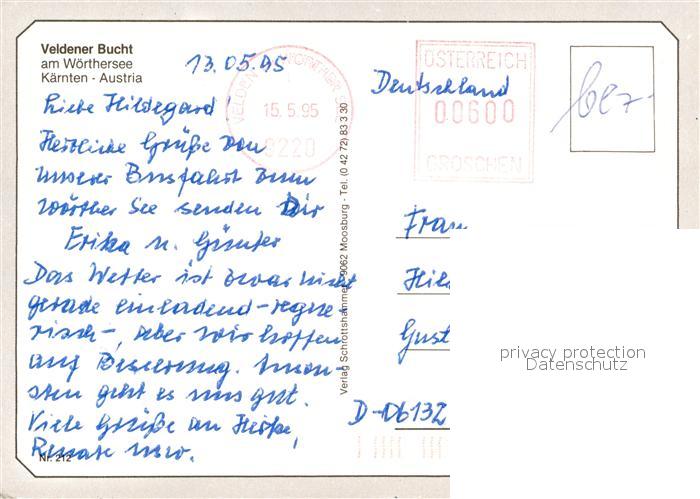 Veldener Bucht
am Wörthersee
Kärnten - Austria
13.05.95
Liebe Hildegard!
Herzliche Grüße von
unserer Busfahrt zum
Wörther See senden Dir
Erika u. Günter
Das Wetter ist zwar nicht
gerade einladend - regne-
risch -, aber wir hoffen
auf Besserung. Anson-
sten geht es uns gut.
Viele Grüße an Heike,
Renate usw.
Nr. 212
Verlag Schrottshammer, 9062 Moosburg - Tel. (0 42 72) 83 3 30
VELDEN
15.5.95
9220
ÖSTERREICH
00600
GROSCHEN
bez.
Deutschland
Frau
Hil
Gust
D-06132
privacy protection
Datenschutz